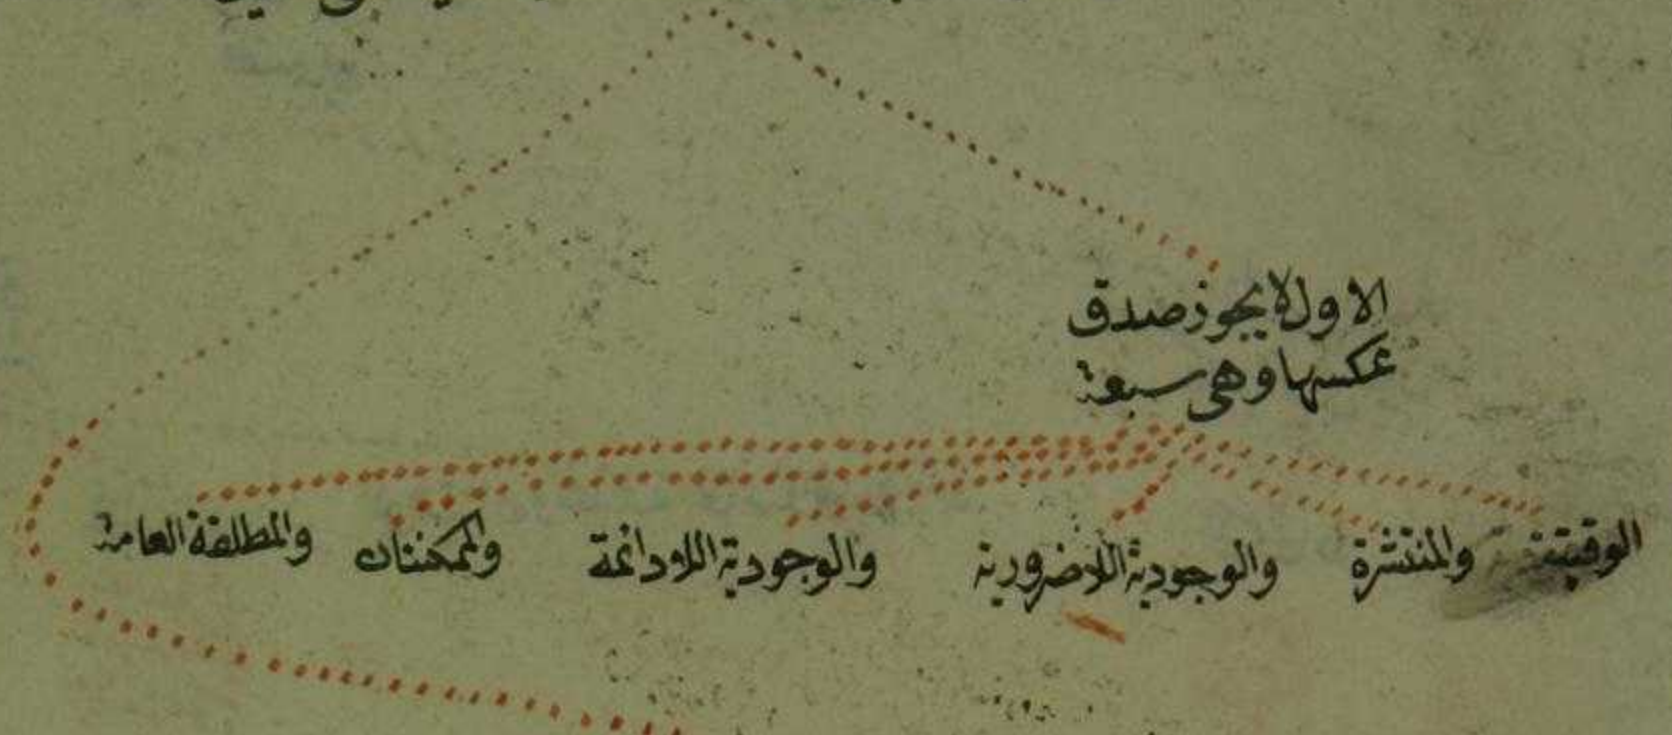 الاول لا يجوز صدق
عكسها وهى سبعة
الوقيتة والمنتشرة والوجودية اللاضرورية والوجودية اللادائمة والممكنتان والمطلقة العامة